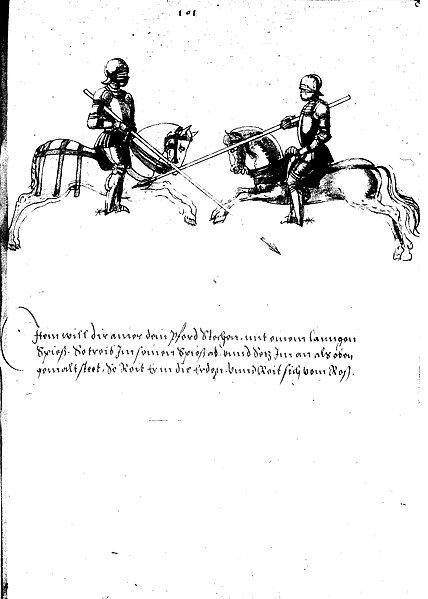 101
Item will dir ainer dein Pferd Stechen. mit einem lanngen
Spieß. So treib Im seinen Spieß ab. vnnd Setz Im an als oben
gemalt steet. So Reit Er in die erden. vnnd Reit sich vom Roß.